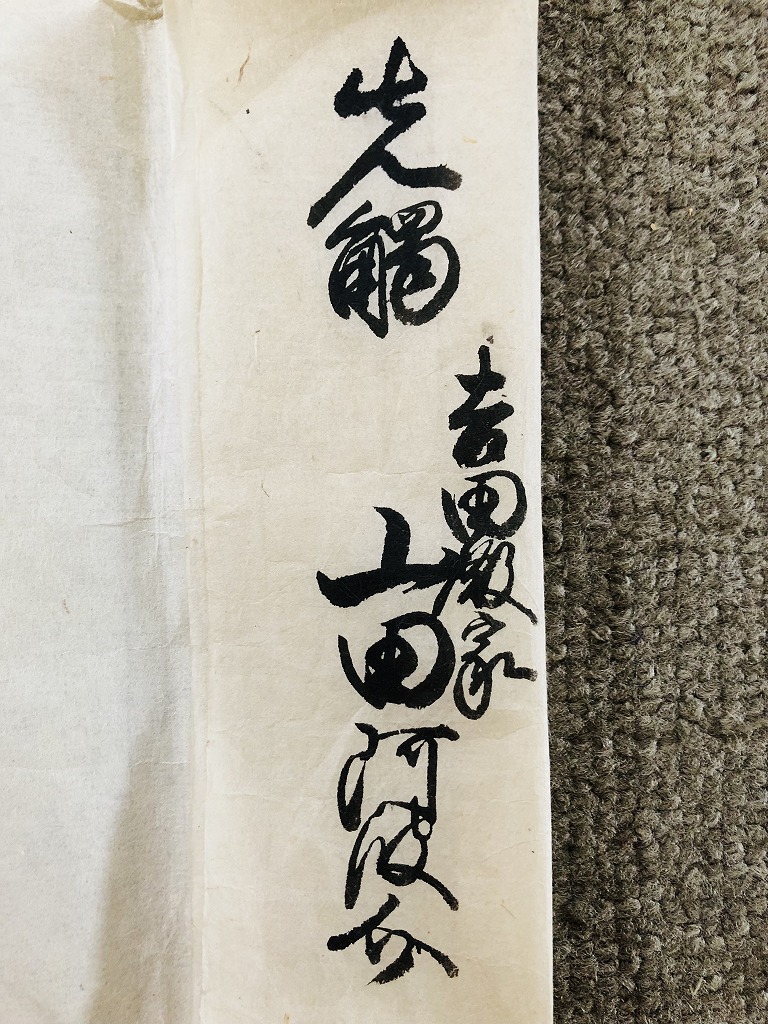 先觸
吉田殿家
山田阿波介